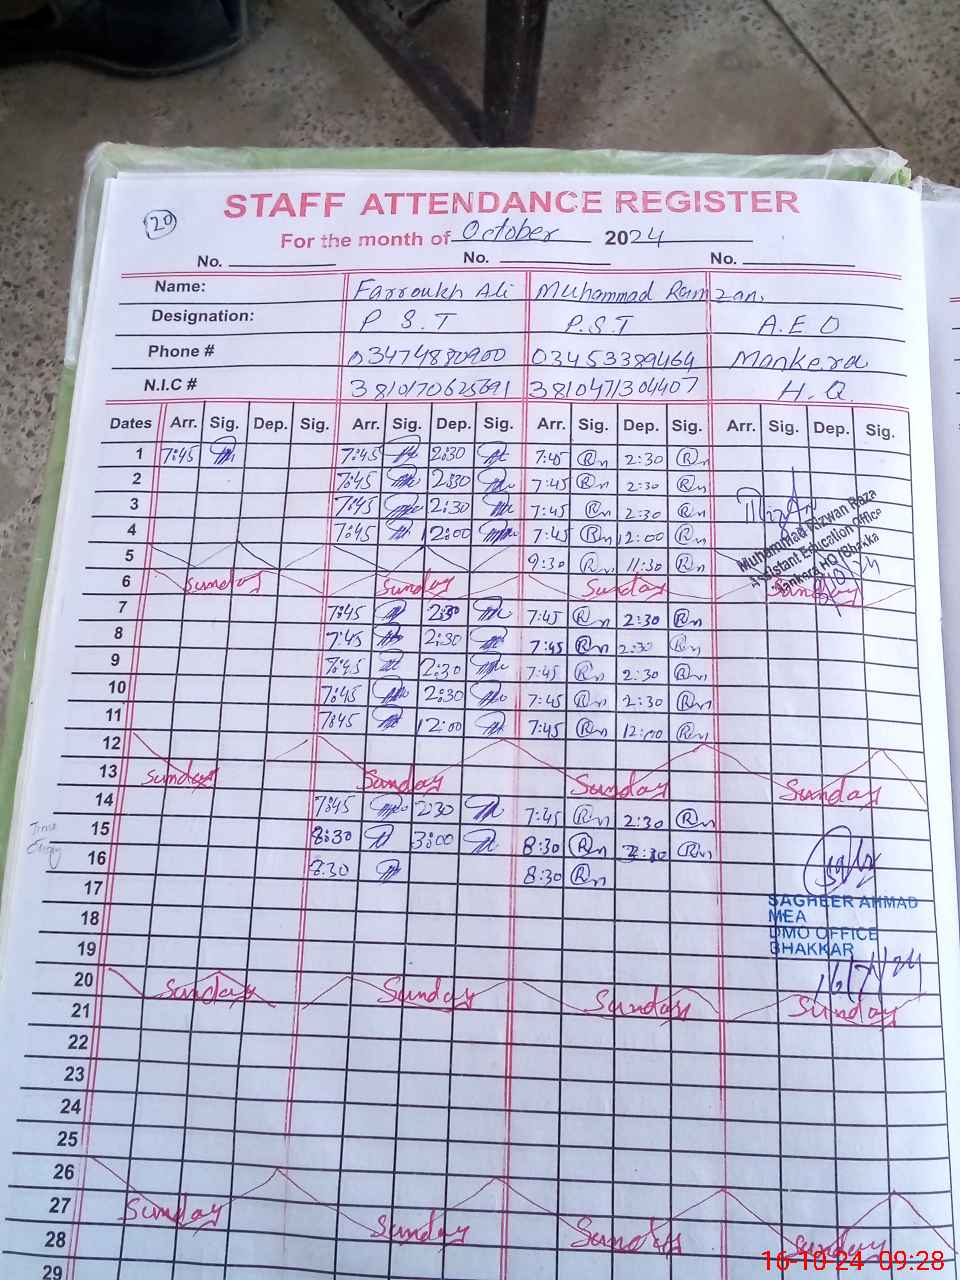 20
STAFF ATTENDANCE REGISTER
For the month of October 2024
No. No. No.
Name: Farroukh Ali Muhammad Ramzan.
Designation: P S.T P.S.T A.E.O
Phone # 03474880900 03453389464 Mankera
N.I.C # 3810470304407 H.Q.
Dates Arr. Sig. Dep. Sig. Arr. Sig. Dep. Sig. Arr. Sig. Dep. Sig. Arr. Sig. Dep. Sig.
1 7:45 7:45 2:30 7:45 Rn 2:30 Rn
2 7:45 2:30 7:45 Rn 2:30 Rn
3 7:45 2:30 7:45 Rn 2:30 Rn
4 7:45 12:00 7:45 Rn 12:00 Rn
Muhammad Rizwan Raza
Assistant Education Office
Mankera HQ (Bhakka
5 9:30 Rn 11:30 Rn
6 Sunday Sunday Sunday Sunday
7 7:45 2:30 7:45 Rn 2:30 Rn
8 7:45 2:30 7:45 Rn 2:30 Rn
9 7:45 2:30 7:45 Rn 2:30 Rn
10 7:45 2:30 7:45 Rn 2:30 Rn
11 7:45 12:00 7:45 Rn 12:00 Rn
12
13 Sunday Sunday Sunday Sunday
14 7:45 2:30 7:45 Rn 2:30 Rn
15 8:30 3:00 8:30 Rn Rn
Time
16 8:30 8:30 Rn
17
SAGHEER AHMAD
MEA
DMO OFFICE
BHAKKAR
18
19
20 Sunday Sunday Sunday Sunday
21
22
23
24
25
26
27 Sunday Sunday Sunday Sunday
28
29
16-10-24 09:28